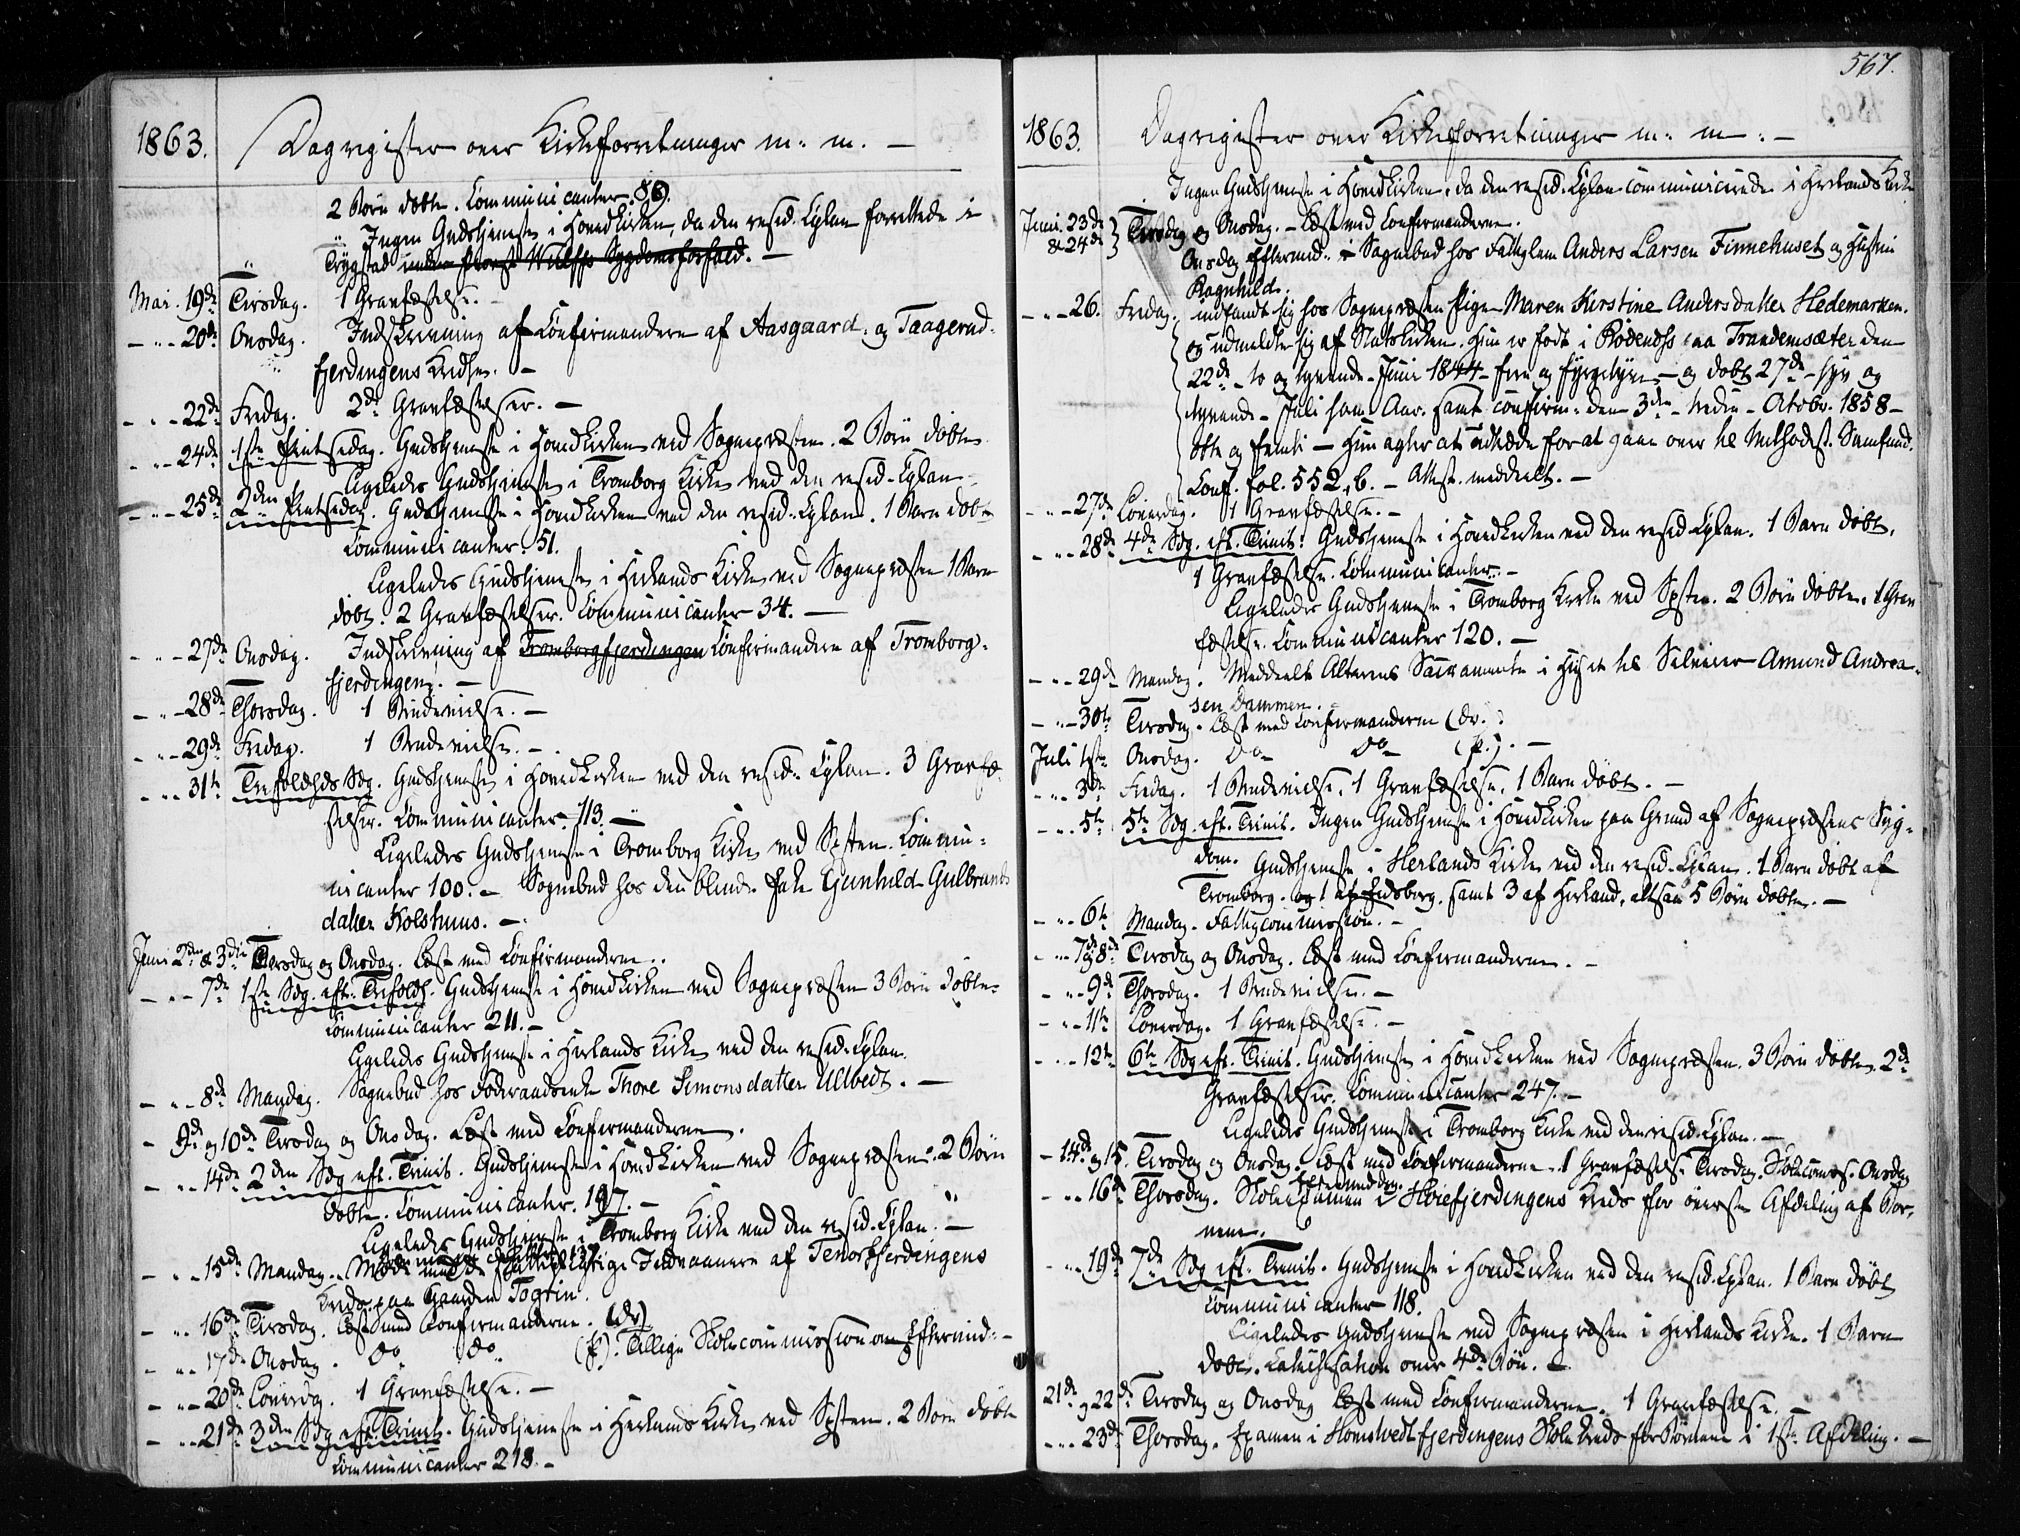 1863. Dagregister over Kirkeforretninger m. m. —
2 Børn døbte. Communicanter. 86.
Ingen Gudstjeneste i Hovedkirken, da den resid. Cplan forrettede i
Trygstad under Provst Wulffs Sygdomsforfald. —
Mai. 19de Tirsdag. 1 Gravfæstelse. —
— " — 20de Onsdag. Indskrivning af Confirmandere af Aasgaard. og Taagerud-
fjerdingens Kredse. —
— " — 22de Fredag. 2de Gravfæstelser. —
— " — 24de 1ste Pintsedag. Gudstjeneste i Hovedkirken ved Sognepræsten. 2 Børn døbte
Ligeledes Gudstjeneste i Tromborg Kirke ved den resid. Cplan —
— " — 25de 2den Pintsedag. Gudstjeneste i Hovedkirken ved den resid. Cplan. 1 Barn døbt
Communicanter. 51.
Ligeledes Gudstjeneste i Herlands Kirke ved Sognepræsten 1 Barn
døbt. 2 Gravfæstelser. Communicanter 34. —
— " — 27de Onsdag. Indskrivning af Tromborgfjerdingen Confirmandere af Tromborg-
fjerdingen. —
— " — 28de Thorsdag. 1 Brudevielse. —
— " — 29de Fredag. 1 Brudevielse. —
— " — 31te Trefoldhds Søg. Gudstjeneste i Hovedkirken ved den resid. Cplan. 3 Gravfæ-
stelser. Communicanter. 113. —
Ligeledes Gudstjeneste i Tromborg Kirke ved Spsten. Commu-
nicanter 100. — Sognebud hos den blinde Enke Gunhild Gulbrands
datter Kolshuus. —
Juni 2den & 3die Tirsdag og Onsdag. Læst med Confirmanderne. .
— " — 7de 1ste Søg. eft. Trefoldh. Gudstjeneste i Hovedkirken ved Sognepræsten 3 Børn døbte
Communicanter 211. —
Ligeledes Gudstjeneste i Herlands Kirke ved den resid. Cplan.
— " — 8de Mandag. Sognebud hos Føderaadsenke Thore Simonsdatter Ulvedt. —
— 9de og 10de Tirsdag og Onsdag. Læst med Confirmanderne.
— " — 14de 2den Søg eft. Trinit. Gudstjeneste i Hovedkirken ved Sognepræsten. 2 Børn
døbte. Communicanter. 197. —
Ligeledes Gudstjeneste i Tromborg Kirke ved den resid. Cplan. —
— " — 15de Mandag. Møde med de Indvaanere af Tenorfjerdingens
Kreds paa Gaarden Togrin.
— " — 16de Tirsdag. Læst med Confirmanderne. (Dr)
— " — 17de Onsdag. do do (P). Tillige Skolecommission om Eftermid. —
— " — 20de Løverdg. 1 Gravfæstelse. —
— " — 21de 3den Søg eft. Trinit. Gudstjeneste i Herlands Kirke ved Spsten. 2 Børn døbte
Communicanter 218. —
567.
1863. Dagregister over Kirkeforretninger m. m. —
Ingen Gudstjeneste i Hovedkirken, da den resid. Cplan communicerede i Herlands Kirke
Juni. 23de & 24de } Tirsdag og Onsdag. — Læst med Confirmanderne.
Onsdag Eftermid. i Sognebud hos Fattiglem Anders Larsen Finnehuset og Hustru
Ragnhild.
— " — 26. Fredag. indfandt sig hos Sognepræsten Pigen Maren Kerstine Andersdatter Hedemarken.
og udmeldte sig af Statskirken. Hun er født i Rødenæs paa Trandemsæter den
22de — to og tyvende — Juni 1844 — fire og fyrgetyve — og døbt 27de — syv og
tyvende — Juli sam. Aar. samt confirm. den 3die — tredie — Octobr. 1858 —
otte og femti — Hun agter at udtræde for at gaae over til Methodist. Samfund.
Conf. fol. 552, b. — Attest. meddeelt. —
— " — 27de Løverdag. 1 Gravfæstelse. —
— " — 28de 4de Søg. eft. Trinit. Gudstjeneste i Hovedkirken ved den resid Cplan. 1 Barn døbt.
1 Gravfæstelse. Communicanter. —
Ligeledes Gudstjeneste i Tromborg Kirke ved Spsten. 2 Børn døbte. 1 Grav
fæstelse. Communicanter 120. —
— " — 29de Mandag. Meddeelt Alterens Sacramente i Huset til Selveier Amund Andrea-
sen Dammen. —
— " — 30te Tirsdag. Læst med Confirmanderne (Dr.)
Juli 1ste Onsdag. Do — Do — (P.). —
— " — 3die Fredag. 1 Brudevielse. 1 Gravfæstelse. 1 Barn døbt. —
— " — 5te 5te Søg. eft. Trinit. Ingen Gudstjeneste i Hovedkirken paa Grund af Sognepræstens Syg-
dom. Gudstjeneste i Herlands Kirke ved den resid. Cplan. 1 Barn døbt af
Tromborg. og 1 af Eidsberg, samt 3 af Herland, altsaa 5 Børn døbte. —
— " — 6te Mandag. Fattigcommission. —
— " — 7de og 8de Tirsdag og Onsdag. Læst med Confirmanderne. —
— " — 9de Thorsdag. 1 Brudevielse. —
— " — 11te Løverdag. 1 Gravfæstelse. —
— " — 12te 6te Søg eft. Trinit. Gudstjeneste i Hovedkirken ved Sognepræsten. 3 Børn døbte. 2de
Gravfæstelser. Communicanter 247. —
Ligeledes Gudstjeneste i Tromborg Kirke ved den resid. Cplan. —
— 14de og 15. Tirsdag og Onsdag. Læst med Confirmanderne. 1 Gravfæstelse Tirsdag. Skolecomms. Onsdag
Eftermiddag.
— " — 16de Thorsdag. Skoleexamen i Høiefjerdingens Kreds for øverste Afdeling af Bør-
nene.
— " — 19de 7de Søg eft. Trinit. Gudstjeneste i Hovedkirken ved den resid. Cplan. 1 Barn døbt
Communicanter 118.
Ligeledes Gudstjeneste ved Sognepræsten i Herlands Kirke. 1 Barn
døbt. Catechisation over 4de Bøn. —
21de og 22de Tirsdag og Onsdag Læst med Confirmanderne. 1 Gravfæstelse. —
— " — 23de Thorsdag. Examen i Homstvedtfjerdingens Skole Kreds for Børnene i 1ste Afdeling. —